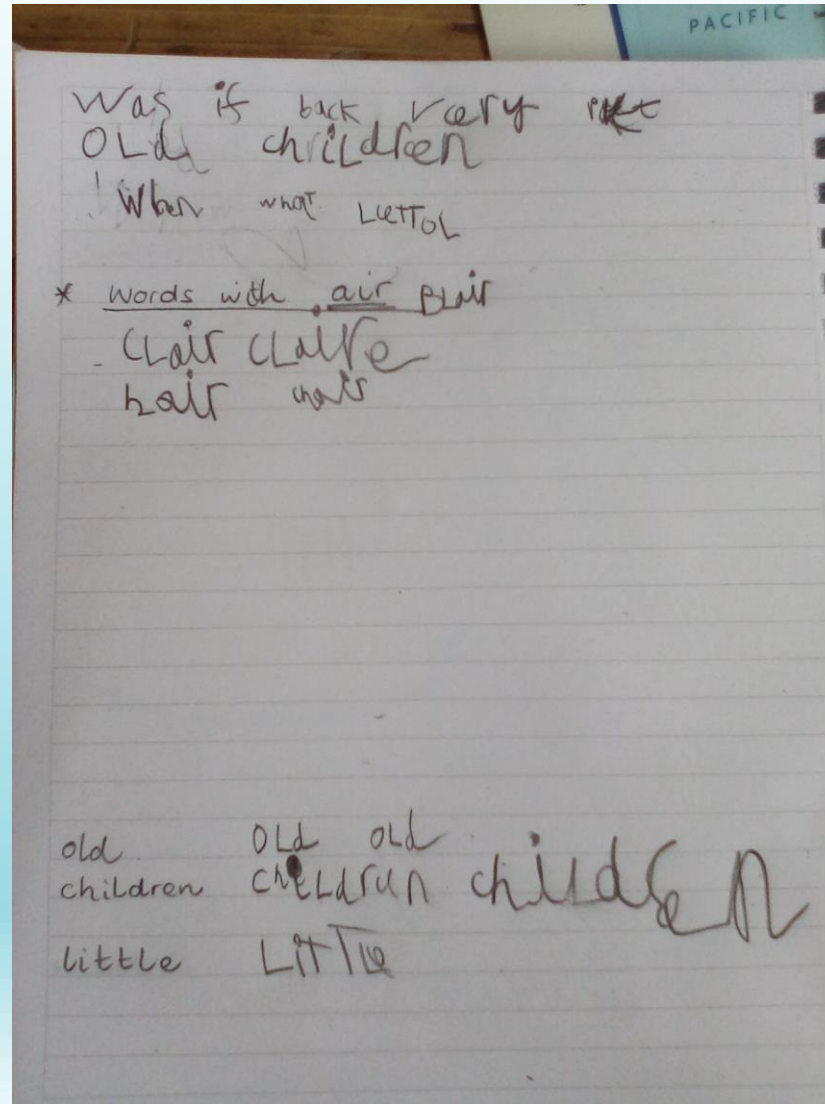 PACIFIC
Was if back very
OLd children
When what LettOL
* words with air BLair
CLair CLaire
hair chair
old OLd OLd
children cheLdrun children
little LiTTle